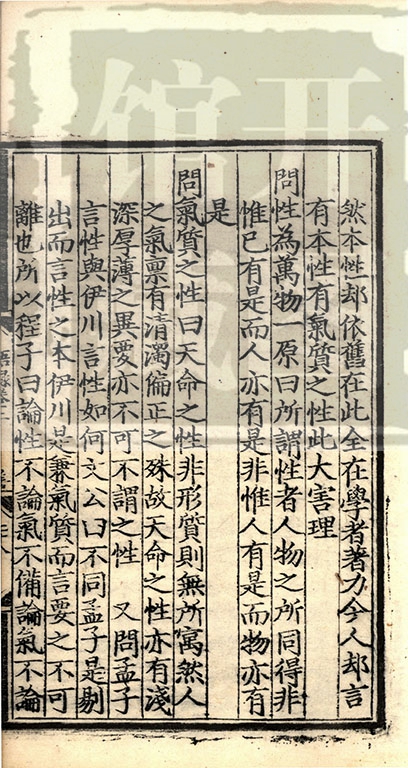 然本性却依舊在此全在學者著力今人却言
有本性有氣質之性此大害理
問性為萬物一原曰所謂性者人物之所同得非
惟已有是而人亦有是非惟人有是而物亦有
是
問氣質之性曰天命之性非形質則無所寓然人
之氣稟有清濁偏正之殊故天命之性亦有淺
深厚薄之異要亦不可不謂之性 又問孟子
言性與伊川言性如何文公曰不同孟子是剔
出而言性之本伊川是兼氣質而言要之不可
離也所以程子曰論性不論氣不備論氣不論